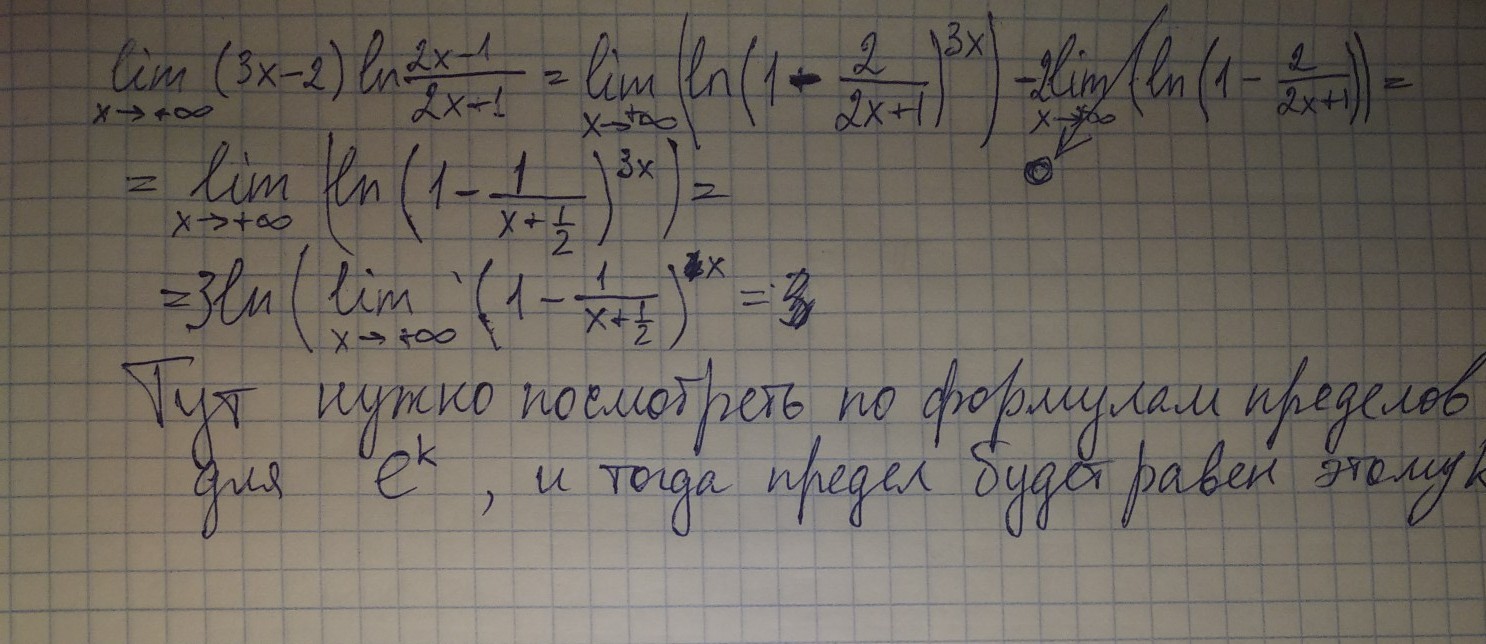 lim x→+∞ (3x-2) ln (2x-1)/(2x+1) = lim x→+∞ (ln(1 - 2/(2x+1))^3x) - 2lim x→+∞ (ln(1 - 2/(2x+1))) =
0
= lim x→+∞ (ln(1 - 1/(x+1/2))^3x) =
= 3ln(lim x→+∞ (1 - 1/(x+1/2))^x =
Тут нужно посмотреть по формулам пределов
для e^k, и тогда предел будет равен этому k